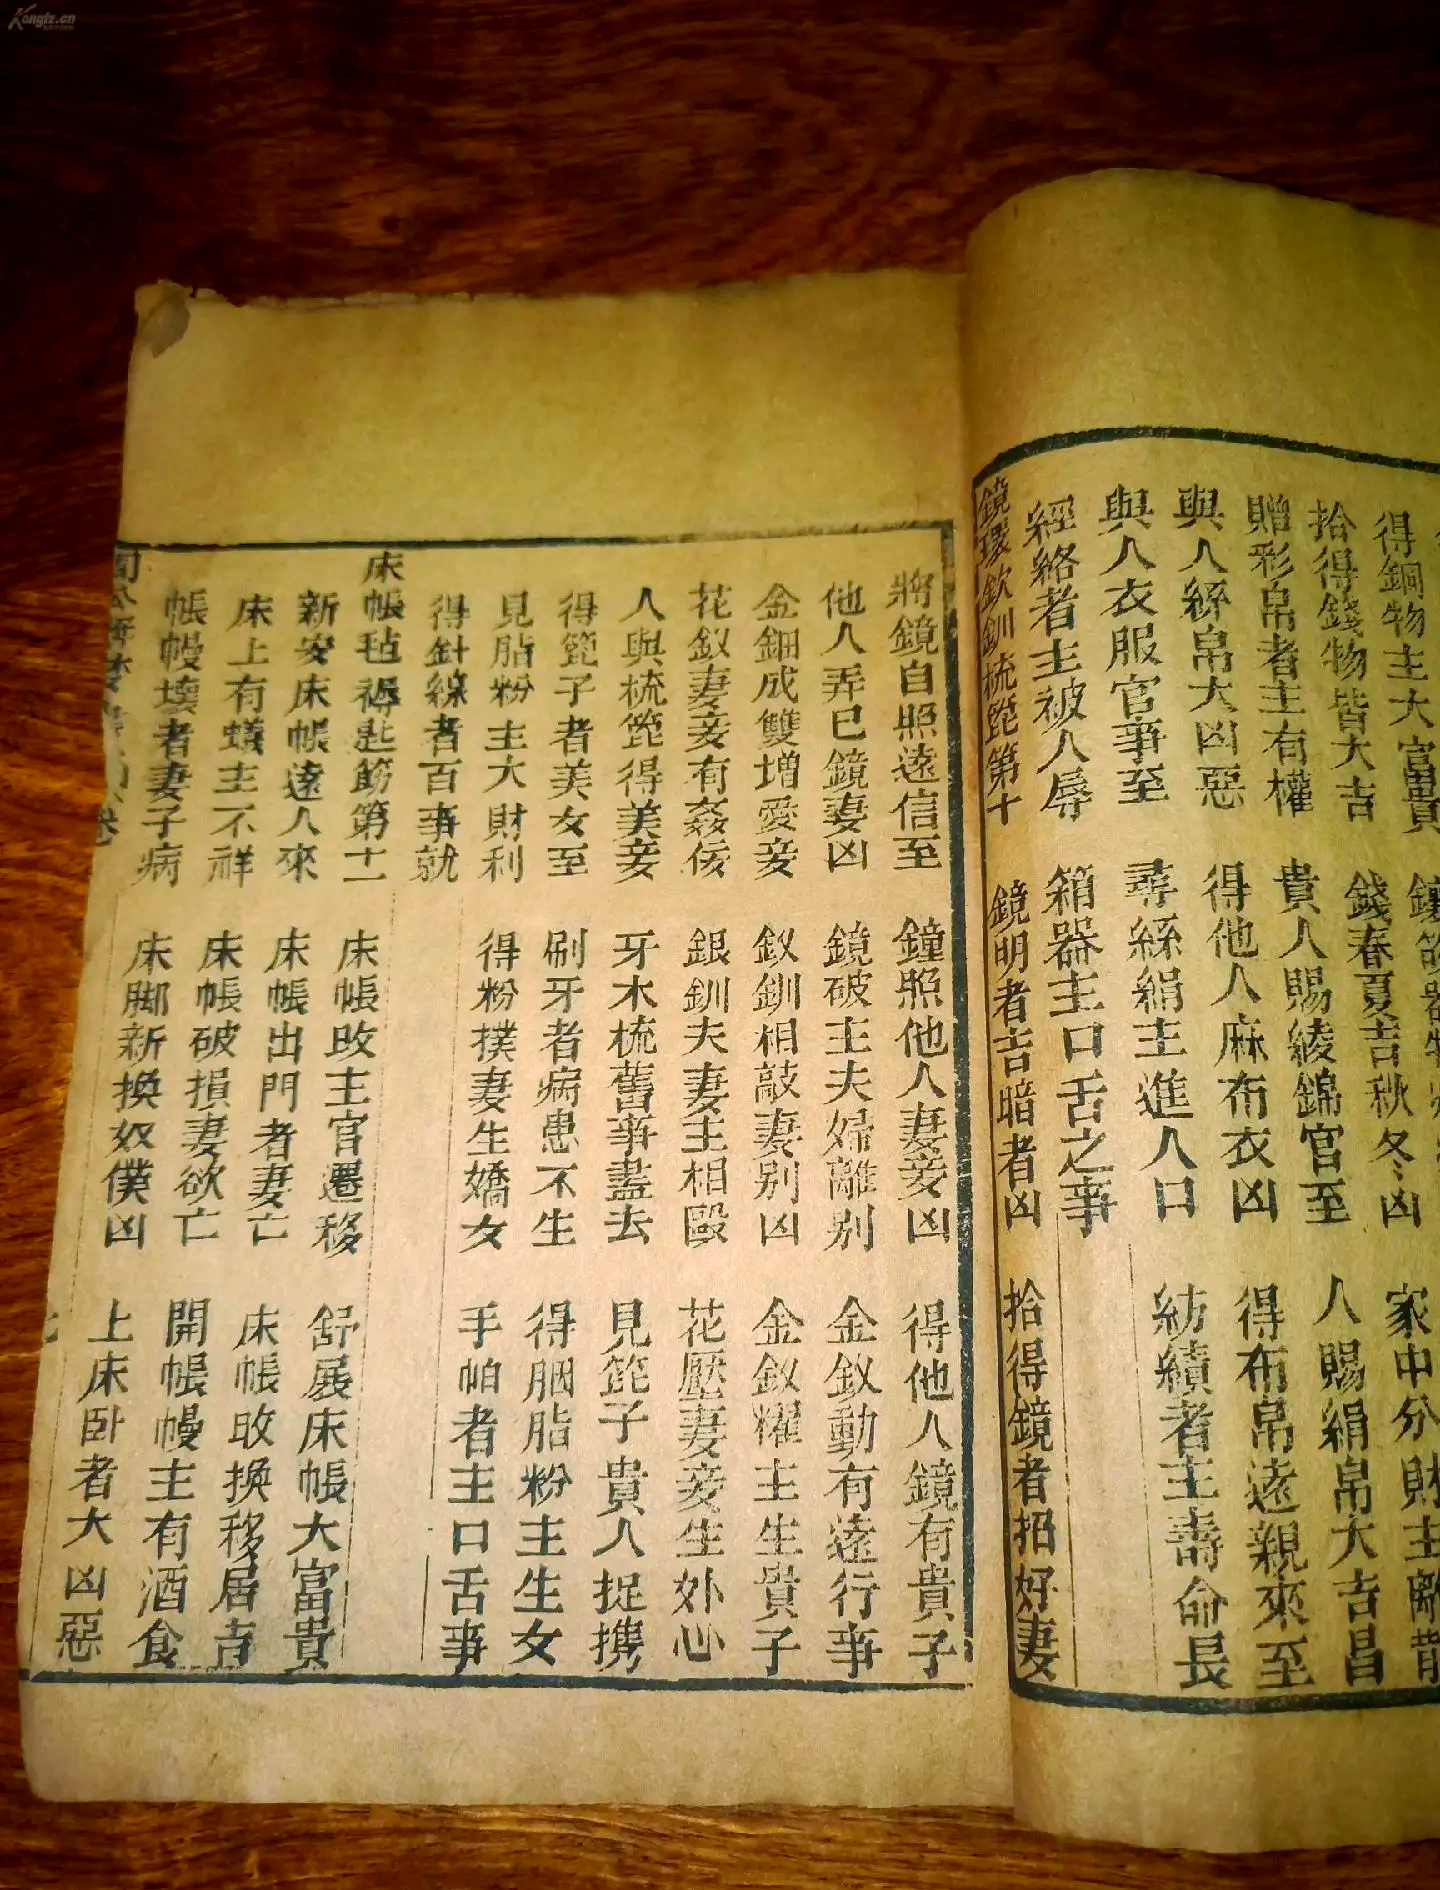 Kongfz.cn
得銅物主大富貴
家中分財主離背
拾得錢物皆大吉
錢春夏吉秋冬凶
人賜絹帛大吉昌
贈彩帛者主有權
貴人賜綾錦官至
得布帛遠親來至
與人絲帛大凶惡
得他人麻布衣凶
紡績者主壽命長
與人衣服官事至
尋絲絹主進人口
經絡者主被人辱
箱器主口舌之事
鏡環釵釧梳篦第十
鏡明者吉暗者凶
拾得鏡者招好妻
將鏡自照遠信至
鐘照他人妻妾凶
得他人鏡有貴子
他人弄己鏡妻凶
鏡破主夫婦離別
金釵動有遠行事
金鈿成雙增愛妾
釵釧相敲妻別凶
金釵耀主生貴子
花釵妻妾有姦佞
銀釧夫妻主相毆
花壓妻妾生外心
人與梳篦得美妾
牙木梳舊事盡去
見篦子貴人捉携
得篦子者美女至
刷牙者病患不生
得胭脂粉主生女
見脂粉主大財利
得粉撲妻生嬌女
手帕者主口舌事
得針線者百事就
床帳毡褥匙筯第十一
床帳改主官遷移
舒展床帳大富貴
新安床帳遠人來
床帳出門者妻亡
床帳改換移居吉
床上有蟻主不祥
床帳破損妻欲亡
開帳幔主有酒食
帳幔壞者妻子病
床脚新換奴僕凶
上床臥者大凶惡